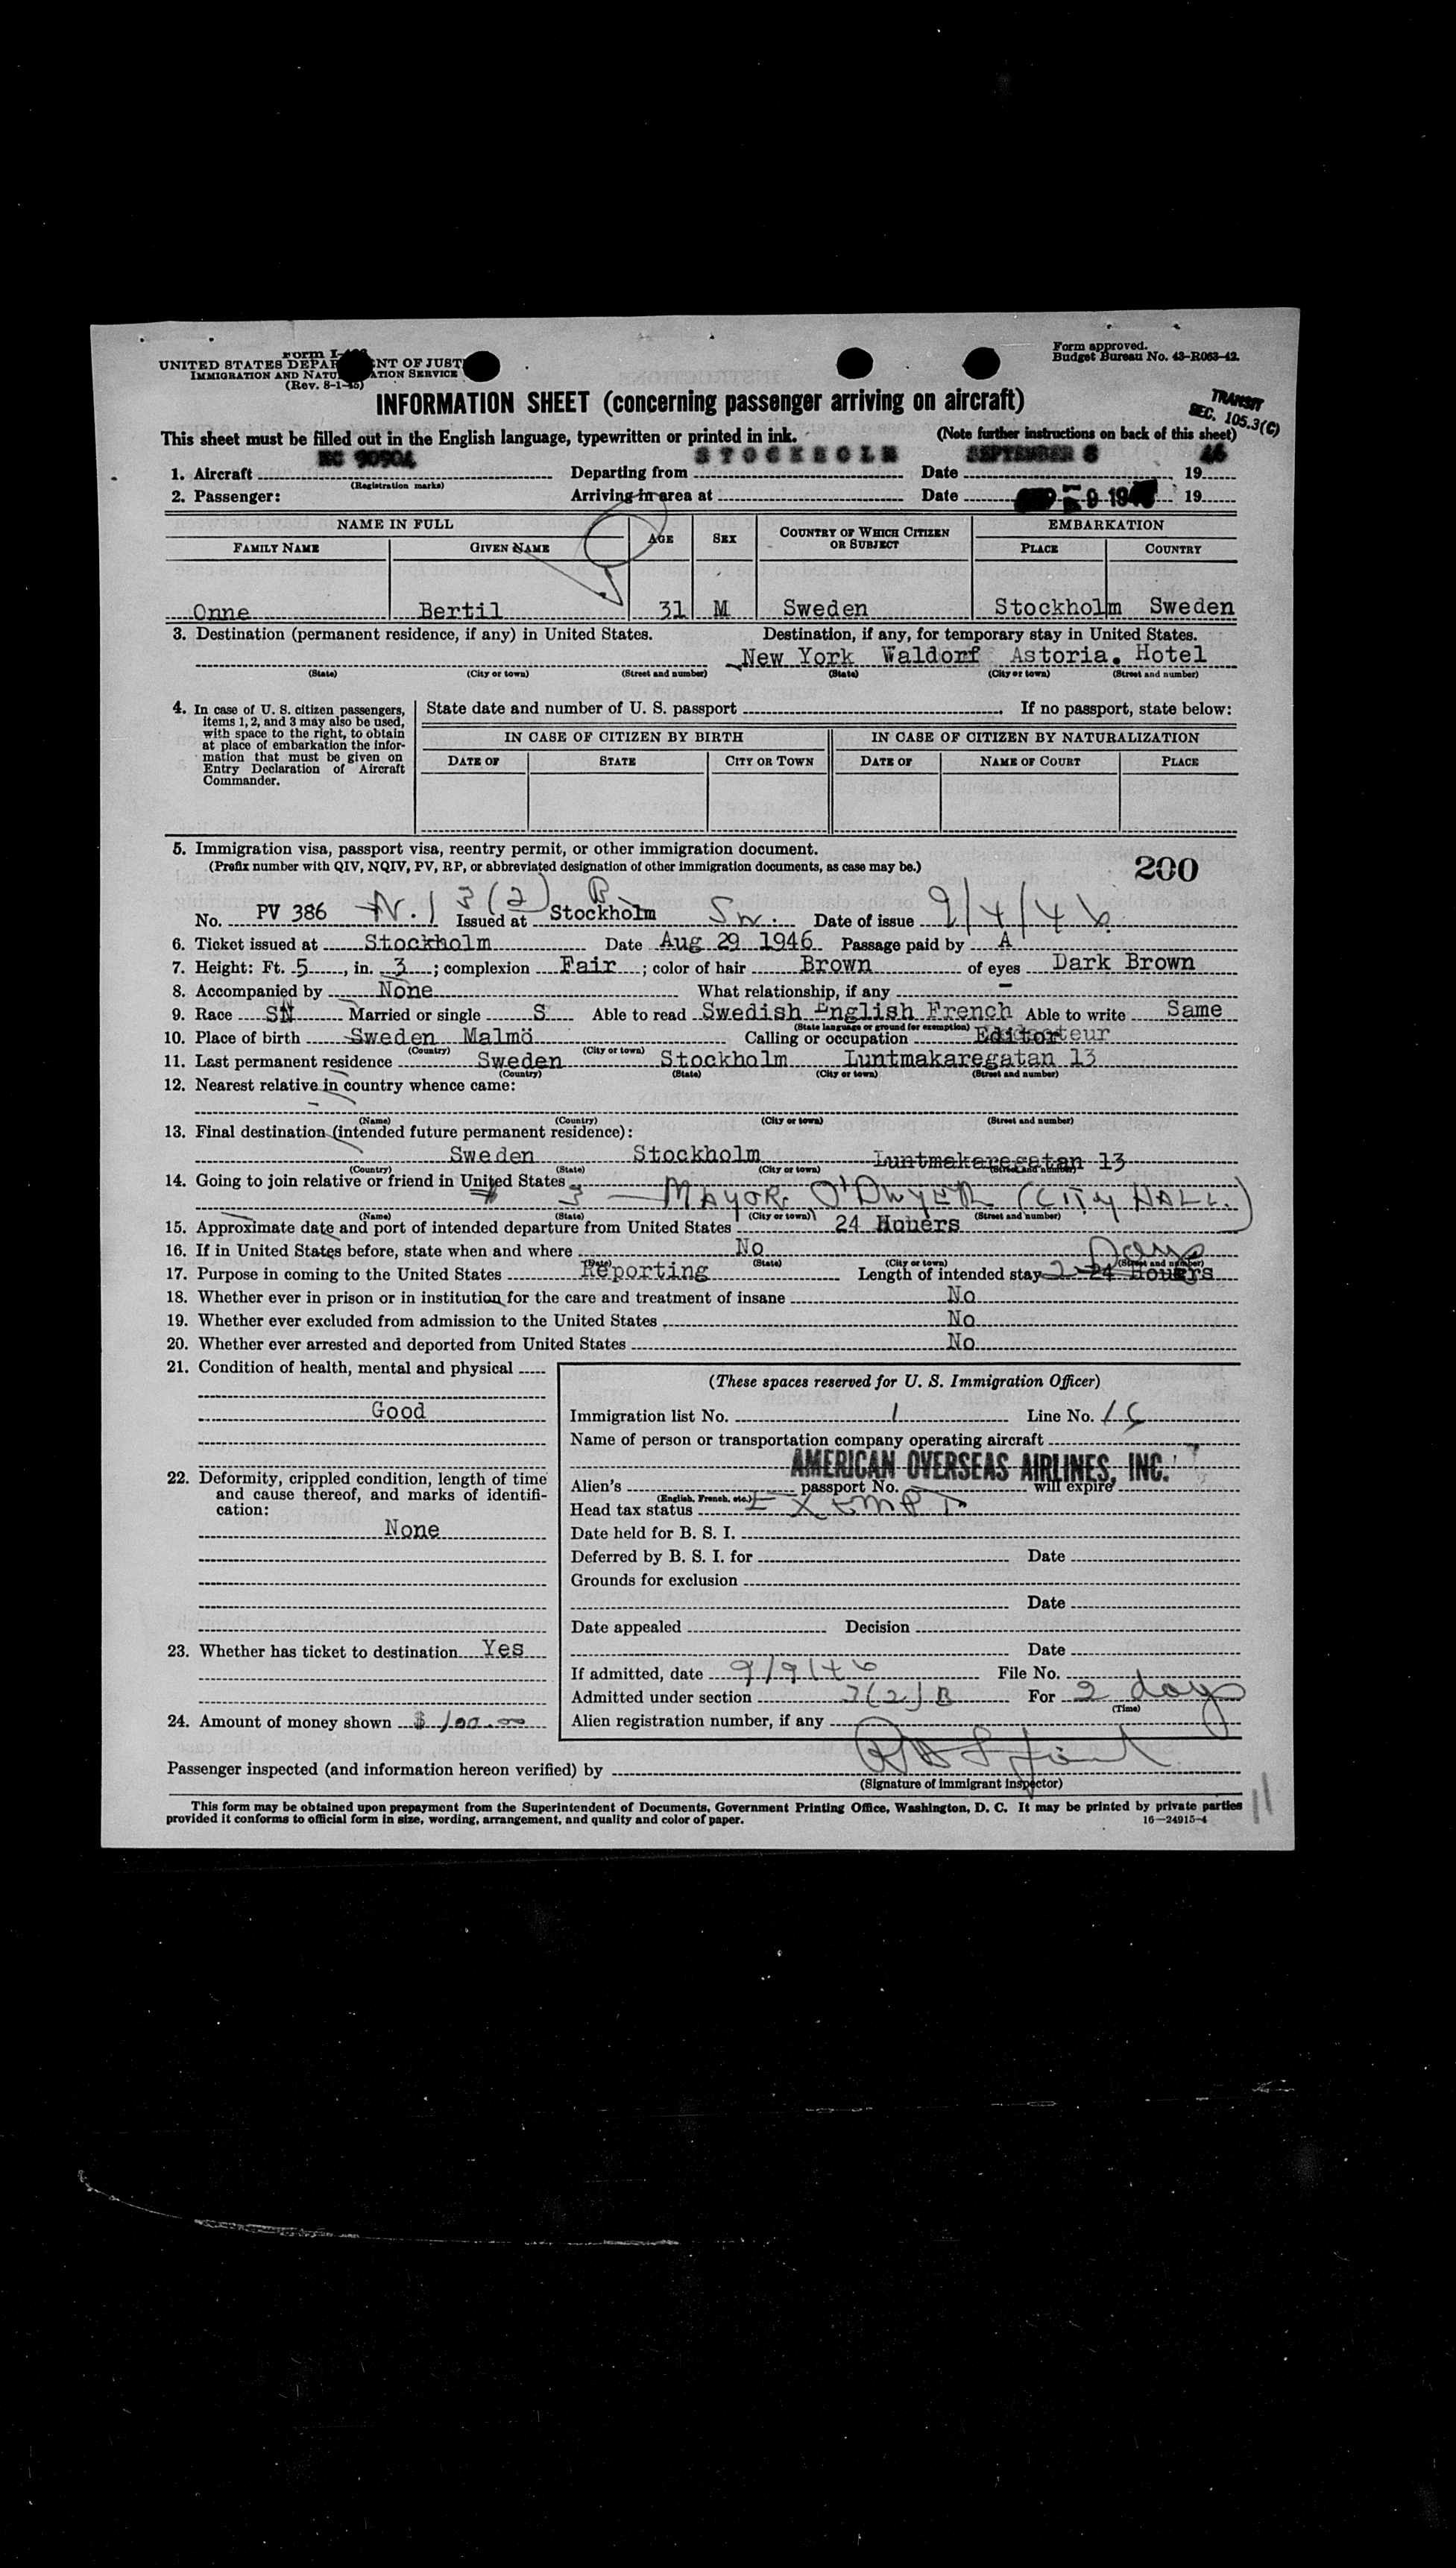 Form I-
UNITED STATES DEPAR NT OF JUST
IMMIGRATION AND NATU ATION SERVICE
(Rev. 8-1-45)
Form approved.
Budget Bureau No. 43-R063-42.
INFORMATION SHEET (concerning passenger arriving on aircraft)
TRANSIT
SEC. 105.3(C)
This sheet must be filled out in the English language, typewritten or printed in ink.
(Note further instructions on back of this sheet)
1. Aircraft NC 90904 Departing from STOCKHOLM Date SEPTEMBER 8 1946
(Registration marks)
2. Passenger: Arriving in area at Date 9 194 19
NAME IN FULL AGE SEX COUNTRY OF WHICH CITIZEN OR SUBJECT EMBARKATION
FAMILY NAME GIVEN NAME PLACE COUNTRY
Onne Bertil 31 M Sweden Stockholm Sweden
3. Destination (permanent residence, if any) in United States. Destination, if any, for temporary stay in United States.
New York Waldorf Astoria. Hotel
(State) (City or town) (Street and number) (State) (City or town) (Street and number)
4. In case of U. S. citizen passengers, items 1, 2, and 3 may also be used, with space to the right, to obtain at place of embarkation the information that must be given on Entry Declaration of Aircraft Commander.
State date and number of U. S. passport If no passport, state below:
IN CASE OF CITIZEN BY BIRTH IN CASE OF CITIZEN BY NATURALIZATION
DATE OF STATE CITY OR TOWN DATE OF NAME OF COURT PLACE
5. Immigration visa, passport visa, reentry permit, or other immigration document.
(Prefix number with QIV, NQIV, PV, RP, or abbreviated designation of other immigration documents, as case may be.)
200
No. PV 386 N.I 3(2) B Issued at Stockholm Sw. Date of issue 9/4/46
6. Ticket issued at Stockholm Date Aug 29 1946 Passage paid by A
7. Height: Ft. 5, in. 3; complexion Fair; color of hair Brown of eyes Dark Brown
8. Accompanied by None What relationship, if any -
9. Race SN Married or single S Able to read Swedish English French Able to write Same
(State language or ground for exemption)
10. Place of birth Sweden Malmö Calling or occupation Editor
(Country) (City or town)
11. Last permanent residence Sweden Stockholm Luntmakaregatan 13
(Country) (State) (City or town) (Street and number)
12. Nearest relative in country whence came:
-
(Name) (Country) (City or town) (Street and number)
13. Final destination (intended future permanent residence):
Sweden Stockholm Luntmakaregatan 13
(Country) (State) (City or town) (Street and number)
14. Going to join relative or friend in United States
MAYOR O'DWYER (CITY HALL.)
(Name) (State) (City or town) (Street and number)
15. Approximate date and port of intended departure from United States 24 Houers
16. If in United States before, state when and where No
(Date) (State) (City or town) (Street and number)
17. Purpose in coming to the United States Reporting Length of intended stay 2 Days 24 Houers
18. Whether ever in prison or in institution for the care and treatment of insane No
19. Whether ever excluded from admission to the United States No
20. Whether ever arrested and deported from United States No
21. Condition of health, mental and physical
Good
22. Deformity, crippled condition, length of time and cause thereof, and marks of identification:
None
23. Whether has ticket to destination Yes
24. Amount of money shown $100.00
(These spaces reserved for U. S. Immigration Officer)
Immigration list No. 1 Line No.
Name of person or transportation company operating aircraft
AMERICAN OVERSEAS AIRLINES, INC.
Alien's passport No. will expire
(English, French, etc.)
Head tax status EXEMPT
Date held for B. S. I.
Deferred by B. S. I. for Date
Grounds for exclusion
Date
Date appealed Decision
Date
If admitted, date 9/9/46 File No.
Admitted under section 3(2) B For 2 days
(Time)
Alien registration number, if any
Passenger inspected (and information hereon verified) by
(Signature of immigrant inspector)
This form may be obtained upon prepayment from the Superintendent of Documents, Government Printing Office, Washington, D. C. It may be printed by private parties
provided it conforms to official form in size, wording, arrangement, and quality and color of paper.
16—24915-4
11